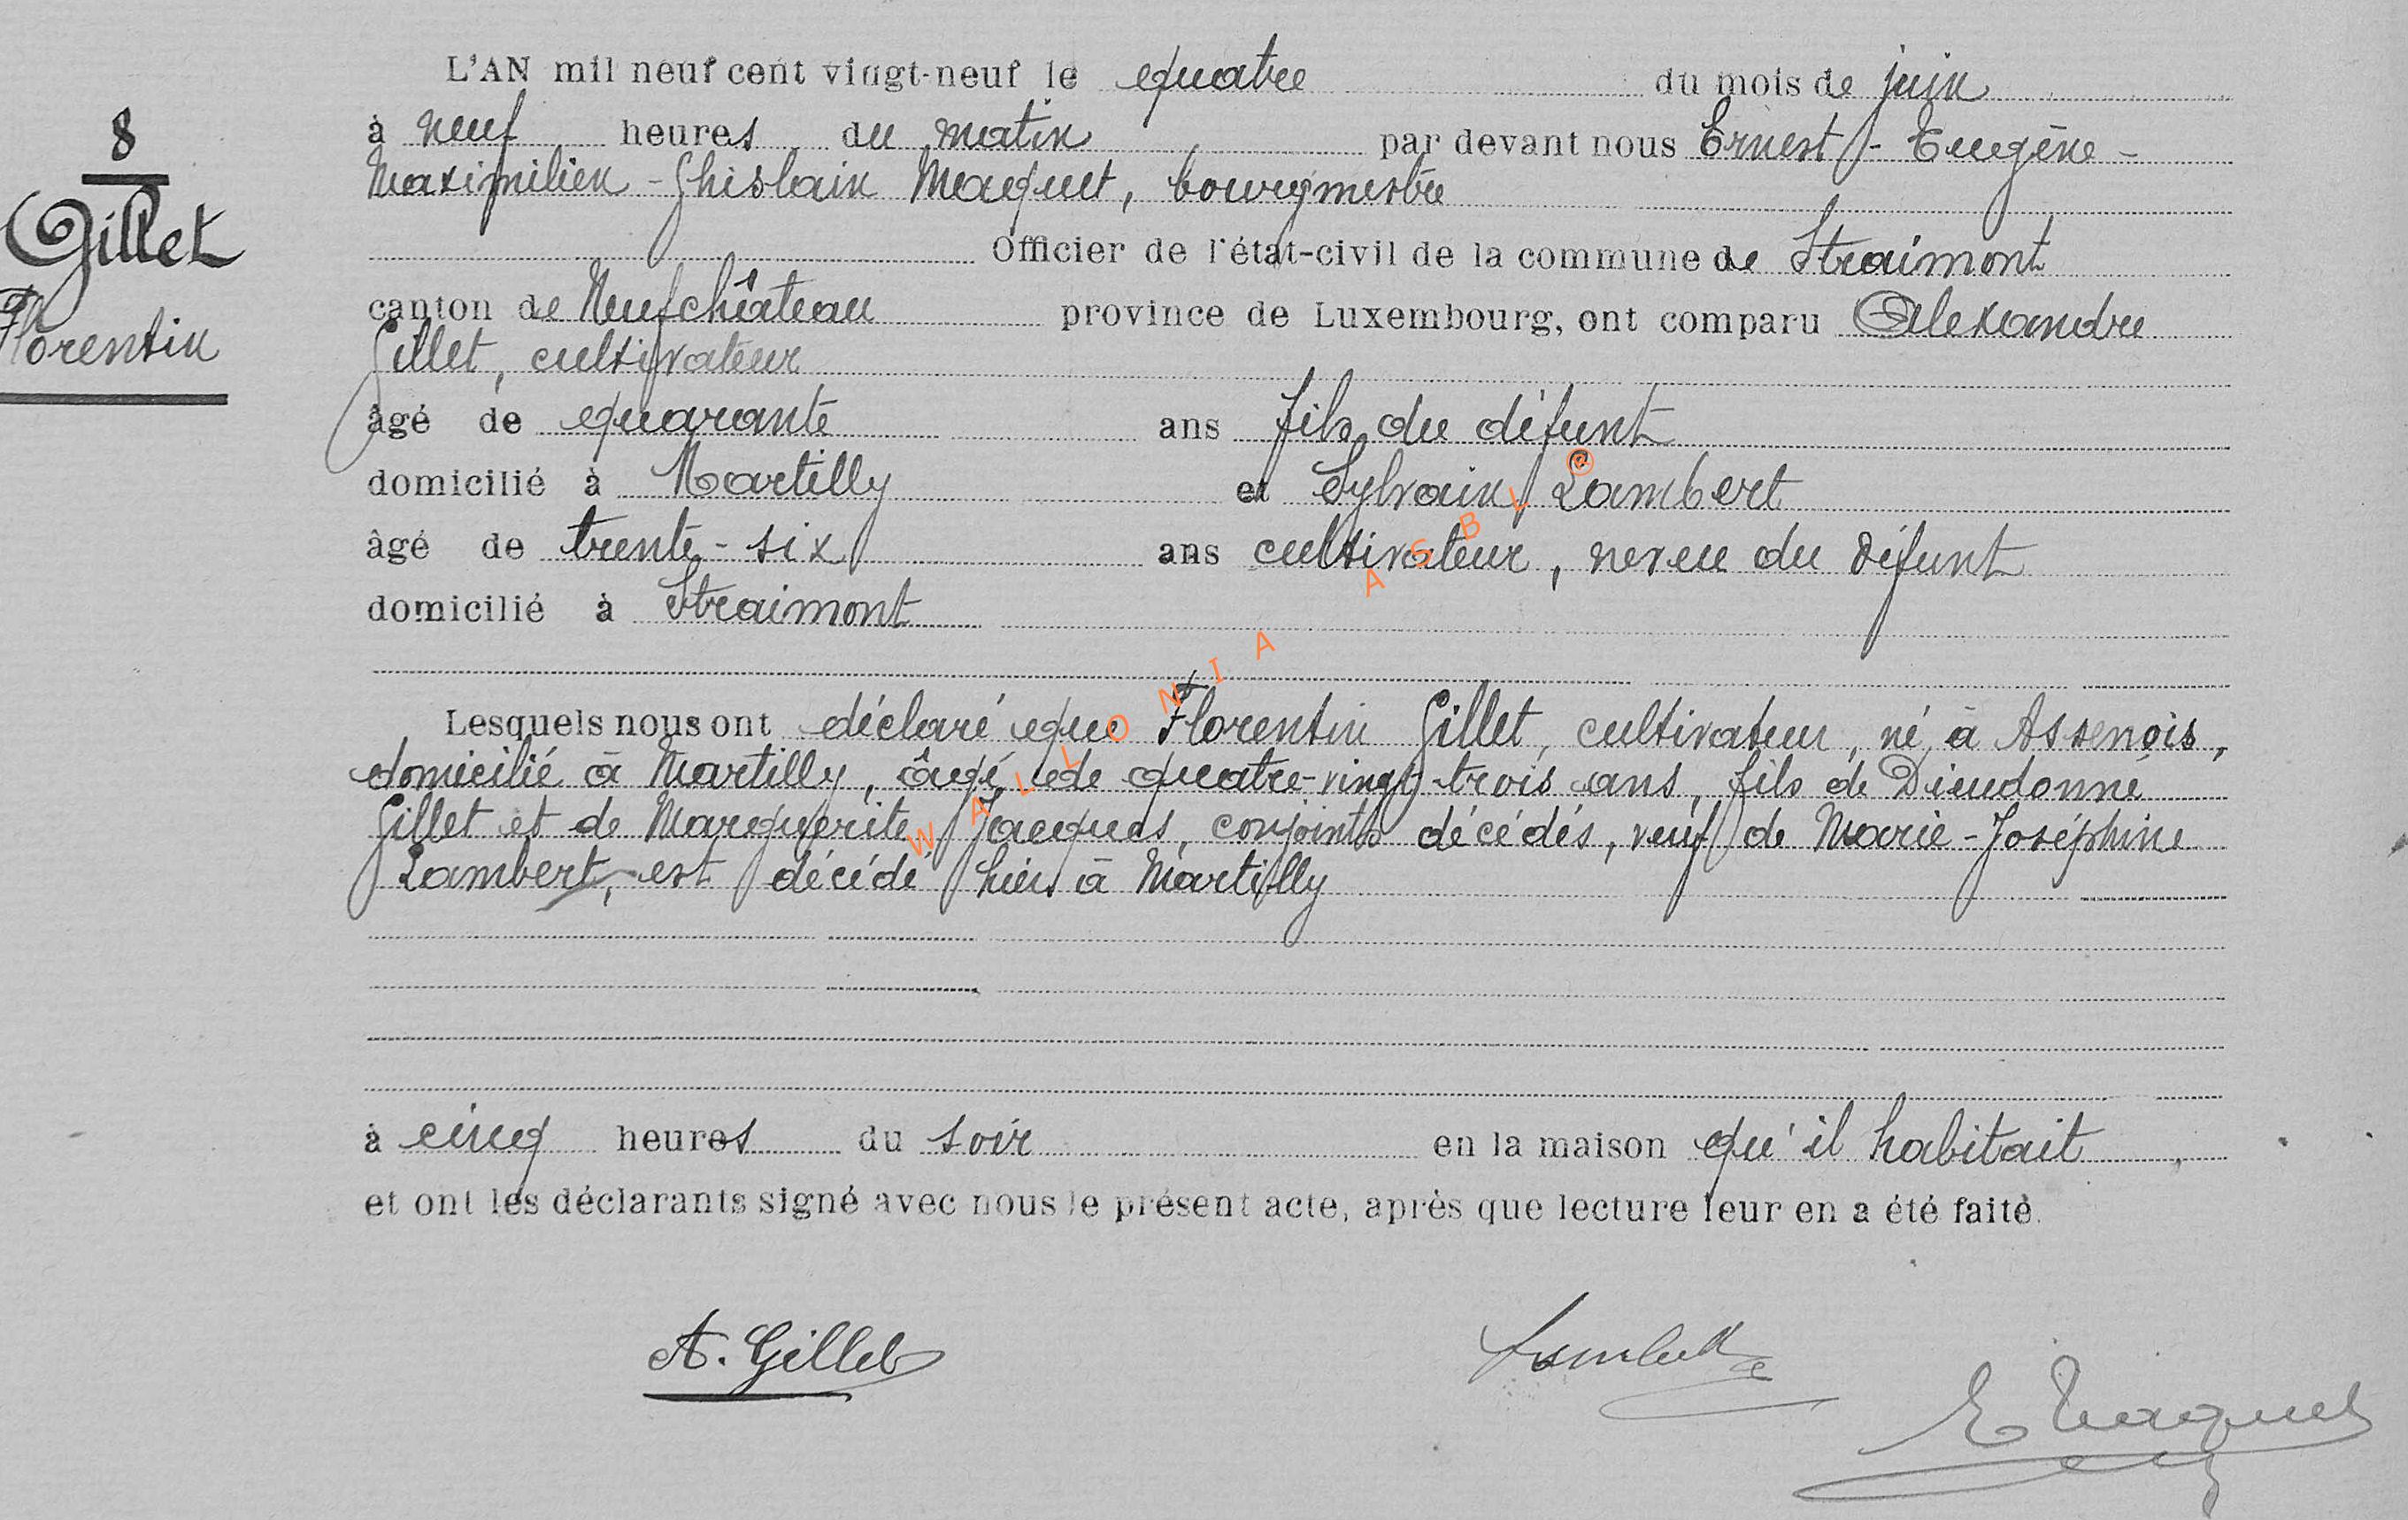 8
Gillet
Florentin
L'AN mil neuf cent vingt-neuf le quatre du mois de juin
à neuf heures du matin par devant nous Ernest - Eugène -
Maximilien - Ghislain Maquet, bourgmestre
Officier de l'état-civil de la commune de Straimont
canton de Neufchâteau province de Luxembourg, ont comparu Alexandre
Gillet, cultivateur
âgé de quarante ans fils du défunt
domicilié à Martilly et Sylvain Lambert
âgé de trente-six ans cultivateur, neveu du défunt
domicilié à Straimont
Lesquels nous ont déclaré que Florentin Gillet, cultivateur, né à Assenois,
domicilié à Martilly, âgé de quatre-vingt-trois ans, fils de Dieudonné
Gillet et de Marguerite Jacques, conjoints décédés, veuf de Marie-Joséphine
Lambert, est décédé hier à Martilly
à cinq heures du soir en la maison qu'il habitait
et ont les déclarants signé avec nous le présent acte, après que lecture leur en a été faite.
A. Gillet
Lambert
E Maquet
WALLONIA ASBL @